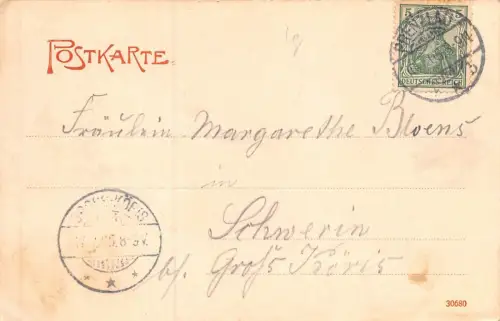 POSTKARTE.
5
DEUTSCHES REICH
Fräulein Margarethe Bloens
in
Schwerin
b/. Groß Köris
30680